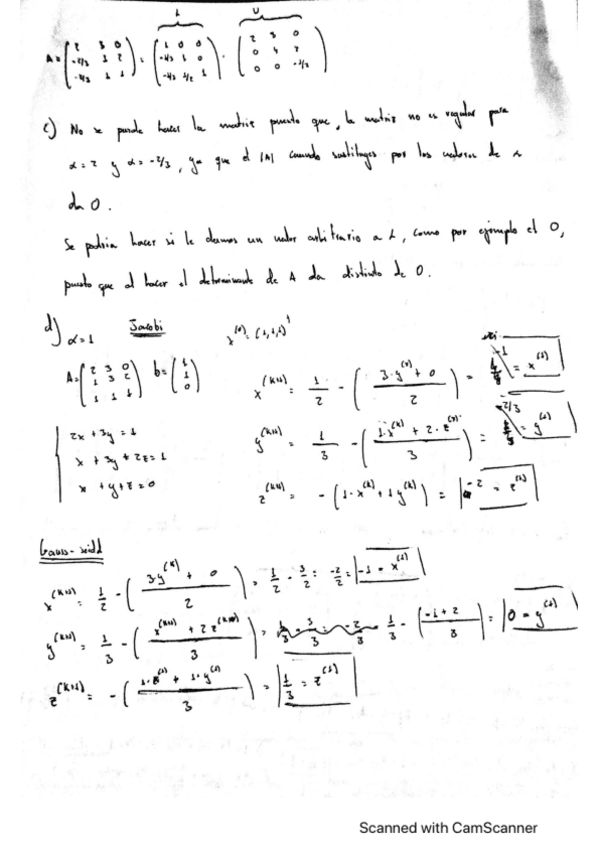 L U
A = ( 2 3 0 ; -2/3 3 2 ; -2/3 1 1 ) = ( 1 0 0 ; -1/3 1 0 ; -1/3 1/2 1 ) · ( 2 3 0 ; 0 4 2 ; 0 0 -1/3 )
c) No se puede hacer la matriz puesto que, la matriz no es regular para
α = 2 y α = -2/3, ya que el |A| cuando sustituyes por los valores de α
da 0.
Se podria hacer si le damos un valor arbitrario a α, como por ejemplo el 0,
puesto que al hacer el determinante de A da distinto de 0.
d) α = 1 Jacobi x^(0) = (1,1,1)^t
A = ( 2 3 0 ; 1 3 2 ; 1 1 1 ) b = ( 1 ; 1 ; 0 )
x^(k+1) = 1/2 - ( 3·y^(k) + 0 / 2 ) = -1 = x^(1)
2x + 3y = 1
x + 3y + 2z = 1
x + y + z = 0
y^(k+1) = 1/3 - ( 1·x^(k) + 2·z^(k) / 3 ) = -2/3 = y^(1)
z^(k+1) = - ( 1·x^(k) + 1 y^(k) ) = -2 = z^(1)
Gauss-seidel
x^(k+1) = 1/2 - ( 3y^(k) + 0 / 2 ) = 1/2 - 3/2 = -2/2 = -1 = x^(1)
y^(k+1) = 1/3 - ( x^(k+1) + 2z^(k) / 3 ) = 1/3 - ( -1 + 2 / 3 ) = 0 = y^(1)
z^(k+1) = - ( + 1·y^(1) / 3 ) = 1/3 = z^(1)
Scanned with CamScanner